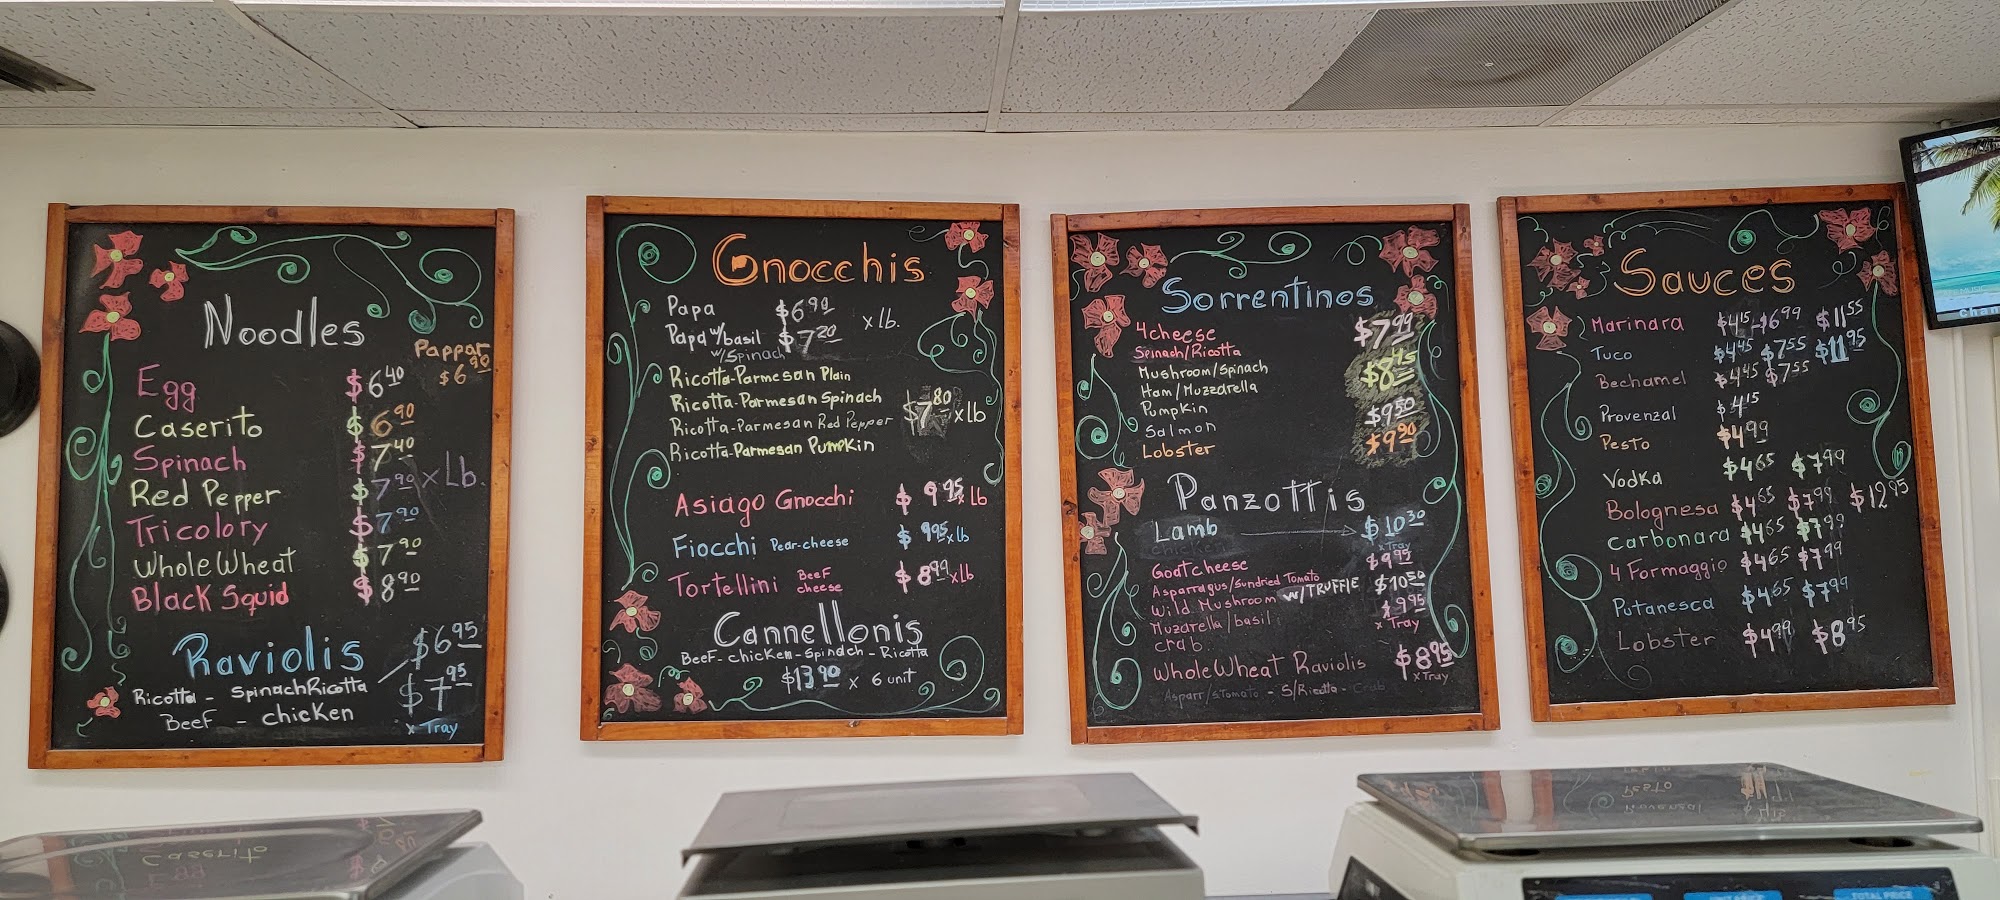 Noodles
Pappar
$6.90
Egg $6.40
Caserito $6.90
Spinach $7.40
Red Pepper $7.90 x Lb.
Tricolory $7.90
Whole Wheat $7.90
Black Squid $8.90
Raviolis $6.95
Ricotta - Spinach Ricotta
$7.95
Beef - chicken
x Tray
Gnocchis
Papa $6.90
x lb.
Papa w/basil $7.20
w/Spinach
Ricotta-Parmesan Plain
Ricotta-Parmesan Spinach $7.80 x lb
Ricotta-Parmesan Red Pepper
Ricotta-Parmesan Pumpkin
Asiago Gnocchi $9.95 x Lb
Fiocchi Pear-cheese $9.95 x lb
Tortellini Beef cheese $8.99 x lb
Cannellonis
Beef - chicken - Spinach - Ricotta
$13.90 x 6 unit
Sorrentinos
4cheese $7.99
Spinach/Ricotta
Mushroom/Spinach $8.45
Ham/Muzzarella
Pumpkin $9.50
Salmon
Lobster $9.90
Panzottis
Lamb $10.30
chicken x Tray
Goat cheese $9.95
Asparragus/Sundried Tomato
Wild Mushroom w/TRUFFIE $10.50
Muzarella/basil $9.95
crab x Tray
Whole Wheat Raviolis $8.95
x Tray
Asparr/STomato - S/Ricotta - Crab
Sauces
Marinara $4.15 $6.99 $11.55
Tuco $4.45 $7.55 $11.95
Bechamel $4.45 $7.55
Provenzal $4.15
Pesto $4.99
Vodka $4.65 $7.99
Bolognesa $4.65 $7.99 $12.95
Carbonara $4.65 $7.99
4 Formaggio $4.65 $7.99
Putanesca $4.65 $7.99
Lobster $4.99 $8.95
Chan
TOTAL PRICE